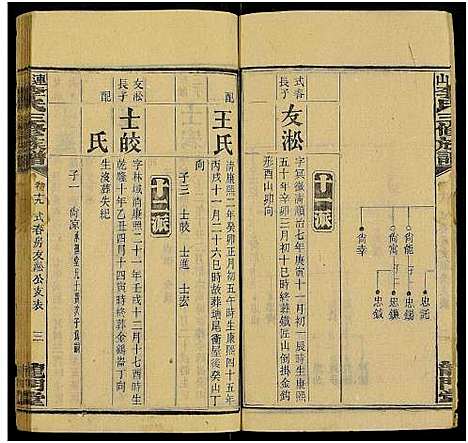 山李氏三修族譜
忠託
尚能
忠錫
尚寓
忠鑑
忠鉞
尚幸
十一派
式春長子
友淞
字冥徵清順治七年庚寅十一月初一辰時生康熙
五十年辛卯三月初十巳時歿葬鐵匠山倒掛金鈎
形酉山卯向
配
王氏
清康熙二年癸卯正月初五午時生康熙四十五年
丙戌十一月二十六巳時故葬塘尾衝屋後癸山丁
向
子三 士皎 士進 士宏
十二派
友淞長子
士皎
字林域清康熙二十一年壬戌十二月十七酉時生
乾隆十年乙丑四月十四寅時終葬金錫崙丁向
配
氏
生沒葬失紀
子一 尚涼
連李氏三修族譜
卷十九 式春房友淞公支表
二
龍門堂